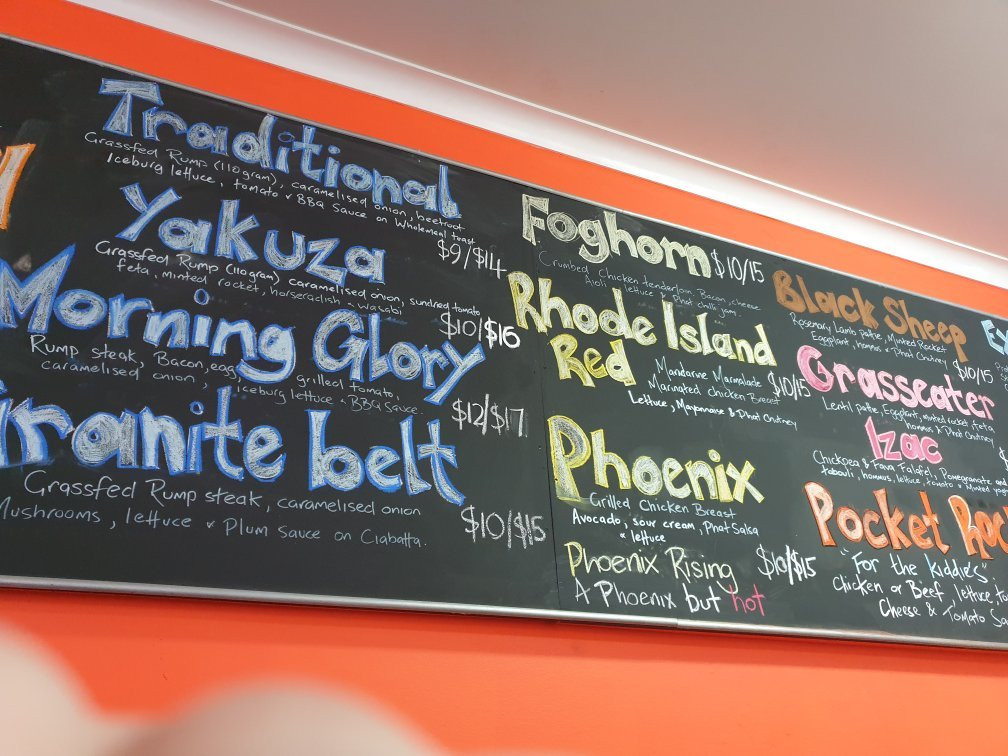 Traditional
Grassfed Rump (110gram), caramelised onion, beetroot
Iceburg lettuce, tomato & BBQ Sauce on Wholemeal toast
$9/$14
Yakuza
Grassfed Rump (110gram) caramelised onion, sundried tomato
feta, minted rocket, horseradish & wasabi
$10/$16
Morning Glory
Rump steak, Bacon, egg, grilled tomato,
caramelised onion, iceburg lettuce & BBQ Sauce.
$12/$17
Granite belt
Grassfed Rump steak, caramelised onion
Mushrooms, lettuce & Plum Sauce on Ciabatta.
$10/$15
Foghorn $10/15
Crumbed Chicken tenderloin Bacon, cheese
Aioli, lettuce & Phat chilli jam
Rhode Island
Red
Mandarine Marmalade $10/15
Marinated chicken Breast
Lettuce, Mayonnaise & Phat Chutney
Phoenix
Grilled Chicken Breast
Avocado, sour cream, Phat Salsa
& lettuce
Phoenix Rising $10/$15
A Phoenix but hot
Black Sheep
Rosemary Lamb pattie, Minted Rocket
Eggplant, hommus & Phat Chutney
$10/15
Grasseater
Lentil pattie, Eggplant, minted rocket, feta
hommus & Phat Chutney
Izac
Chickpea & Fava Falafel, Pomegranate
tabouli, hommus, lettuce, tomato & Minted
Pocket
"For the kiddies"
Chicken or Beef, lettuce,
Cheese & Tomato